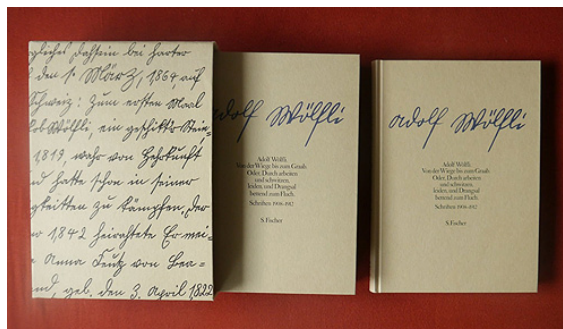 gliches Dahsein bei harter
den 1. März, 1864, auf
Schweiz: Zum ersten Maal
ob Wölfli, ein geschikt'r Stein,
1819, wahr von Hehrkunft
d hatte schon in seiner
gkeitten zu kämpfen, der
1842 heirahtete Er mei=
Anna Feutz von Bea=
nd, geb. den 3. April 1822
adolf Wölfli
Adolf Wölfli.
Von der Wiege bis zum Graab.
Oder, Durch arbeiten
und schwitzen,
leiden, und Drangsal
bettend zum Fluch.
Schriften 1908–1912
S. Fischer
adolf Wölfli
Adolf Wölfli.
Von der Wiege bis zum Graab.
Oder, Durch arbeiten
und schwitzen,
leiden, und Drangsal
bettend zum Fluch.
Schriften 1908–1912
S. Fischer